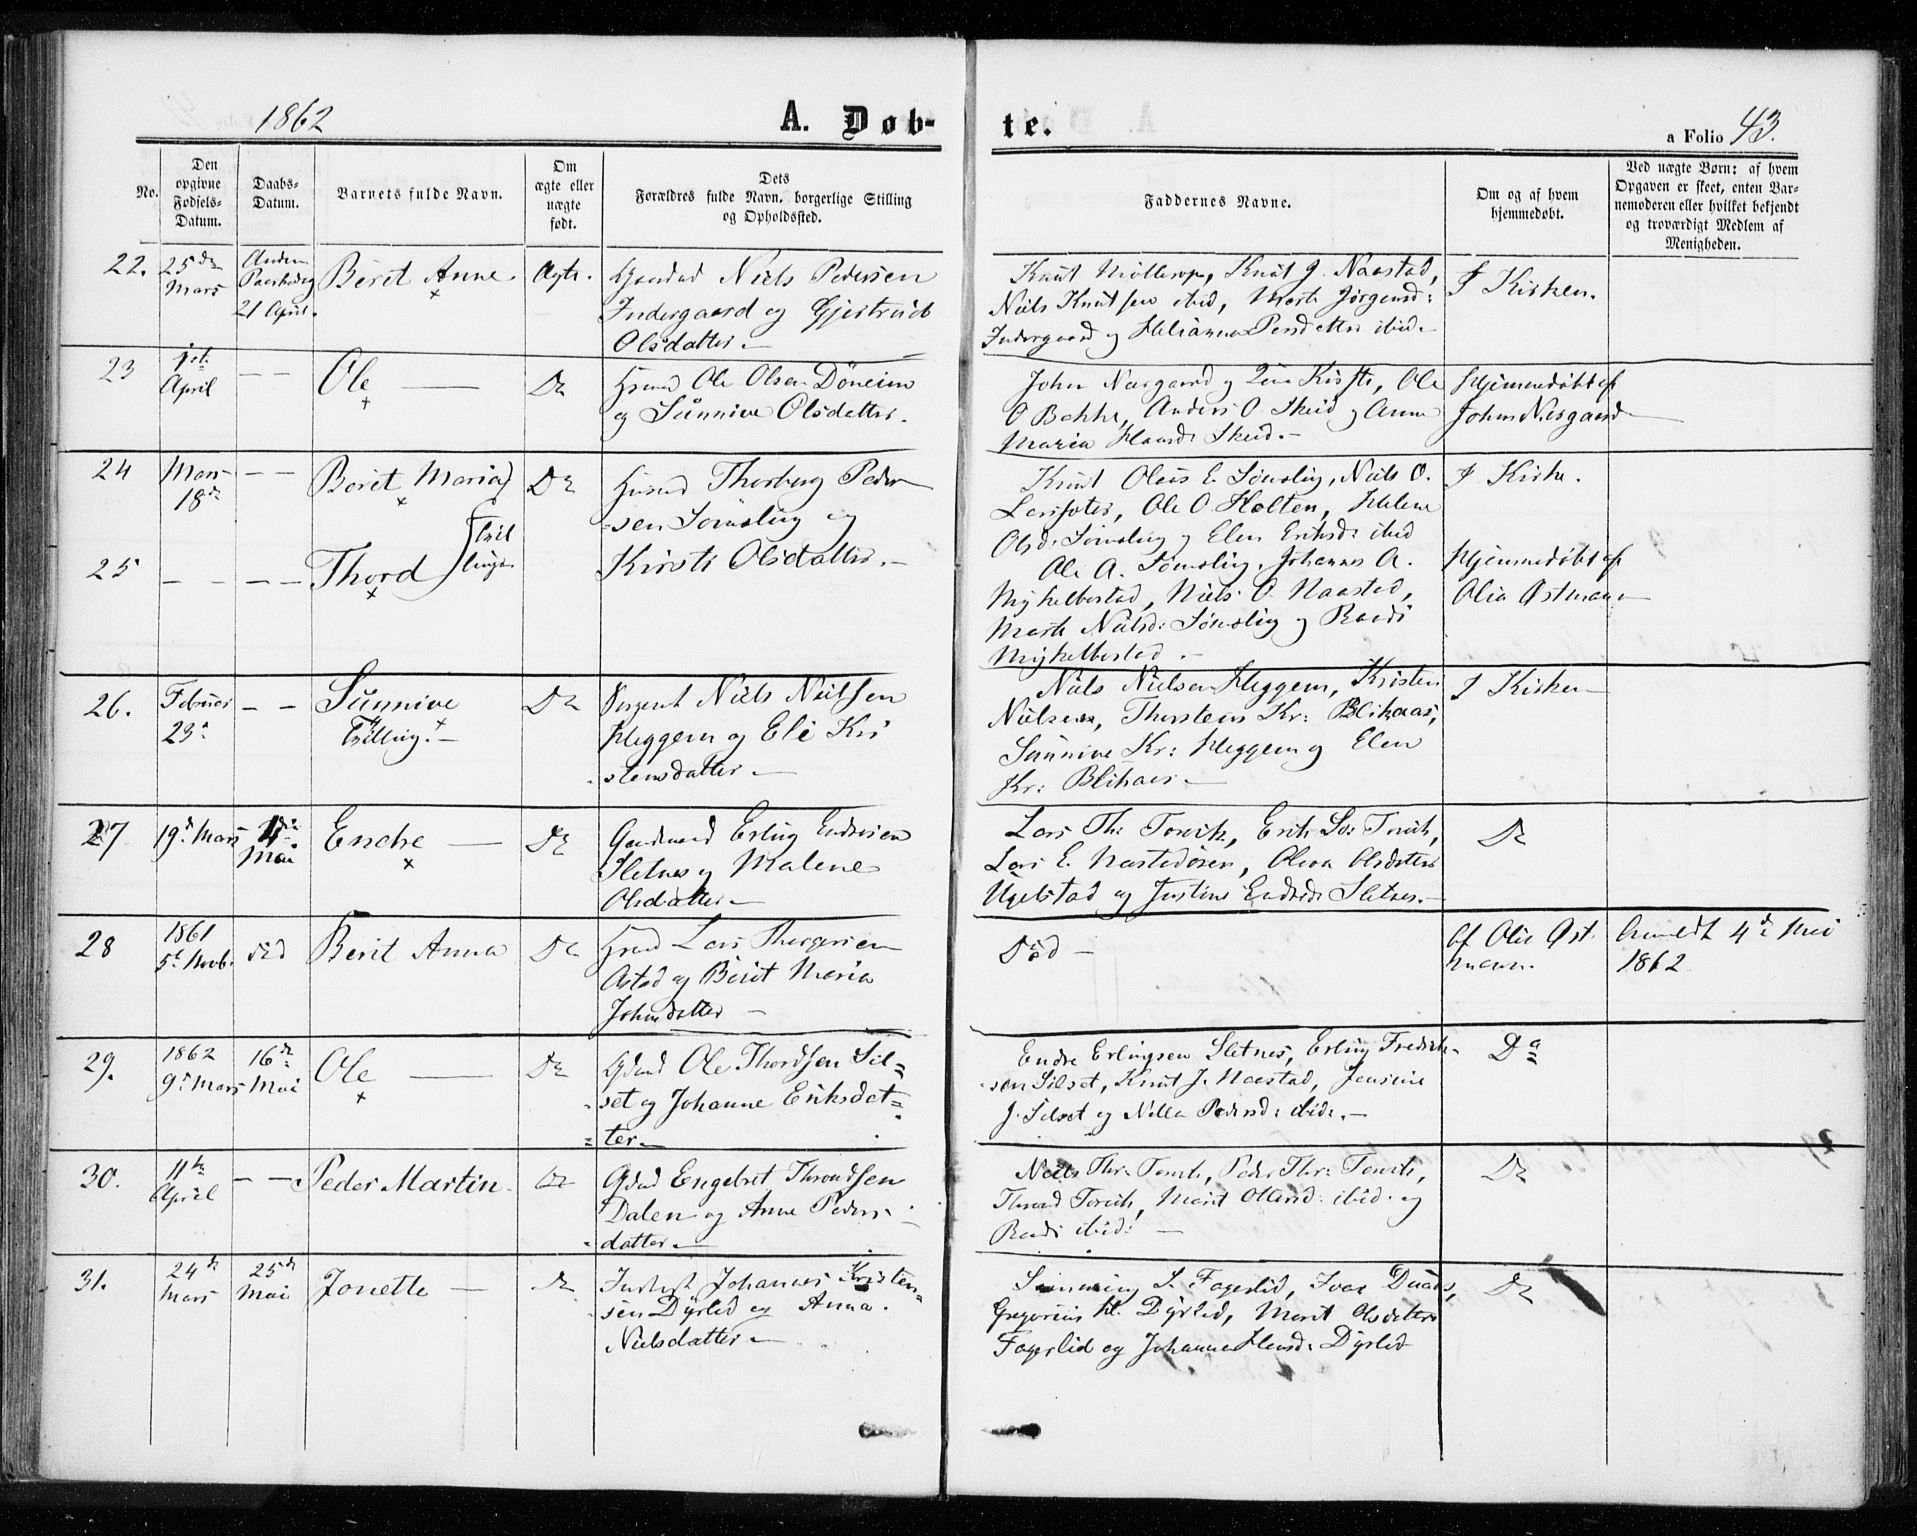 1862
A. Døb-
te.
a Folio 43.
No.
Den
opgivne
Fødsels-
Datum.
Daabs-
Datum.
Barnets fulde Navn.
Om
ægte eller
uægte
født.
Dets
Forældres fulde Navn, borgerlige Stilling
og Opholdssted.
Faddernes Navne.
Om og af hvem
hjemmedøbt.
Ved uægte Børn: af hvem
Opgaven er skeet, enten Bar-
nemoderen eller hvilket bekjendt
og troværdigt Medlem af
Menigheden.
22.
25de
Mars
Anden
Paaskedag
21 April.
Berit Anne
Ægte.
Niels Pedersen
Indergaard og Gjertrud
Olsdatter.
Knut Møllerop, Knut J. Naastad,
Niels Knutsen ibid, Marit Jørgensd:
Indergaard og Persdatter ibid.
I Kirken.
23
1ste
April
— —
Ole
Do
Ole Olsen Døneim
og Sünnive Olsdatter.
John Nesgaard og Kirsti, Ole
O Bakke, Anders O. Skeid og Anne
Maria Skeid.
Hjemmedøbt af
John Nesgaard
24
Mars
18de
— —
Berit Maria
Do
Husmd Thorberg Peder-
sen Sømslig og
Kirsti Olsdatter.
Tvil
linger
Knut Olaus E. Sømslig, Niels O.
Ole O Holten, Helene
Olsd: Sømslig og Elen Eriksd: ibid
I Kirke.
25
— —
— —
Thord
Ole A. Sømslig, Johannes A.
Myhelbostad, Niels O. Naastad,
Marit Nielsd: Sømslig og Randi
Myhelbostad.
Hjemmedøbt af
Olia Østmann
26.
Februar
23de
— —
Sünnive
Tvilling.
Do
Sergent Niels Nielsen
Heggem og Eli Kri
stensdatter
Niels Nielsen Heggem, Kristen
Nielsen, Thorstein Kr: Blikaas,
Sünnive Kr: Heggem og Elen
Kr: Blikaas
I Kirken
27
19de Mars
4de
Mai
Endre
Do
Gaardmand Erling Endresen
Sletnes og Malene
Olsdatter
Lars Th: Torvik, Erik Torvik,
Lars E. Naastadøren, Olava Olsdatter
Ugelstad og Justine Endresd: Sletnes.
Do
28
1861
5te Novb.
død
Berit Anna
Do
Lars Thorgersen
Astad og Berit Maria
Johnsdatter
Død
af Olia Øst
mann.
Anmeldt 4de Mai
1862
29.
1862
9de Mars
16de
Mai
Ole
Do
Ole Thordsen Sil-
set og Johanne Eriksdat-
ter
Endre Erlingsen Sletnes, Erling Fredrik-
sen Silset, Knut J. Naastad, Jensine
J. Silset og Nella Pedersd: ibid.
Do
30.
11te
April
— —
Peder Martin
Do
Engebret Throndsen
Dalen og Anne Peders-
datter
Niels Thr: Torvik, Peder Thr: Torvik,
Thrond Torvik, Marit ibid. og
Randi ibid:
Do
31.
24de
Mars
25de
Mai
Jonette
Do
Johannes Kristen-
sen Dyrlid og Anna
Nielsdatter
S. Fagerlid, Ivar
Gregorius Dyrlid, Marit Olsdatter
Fagerlid og Johanne Hansd: Dyrlid
Do